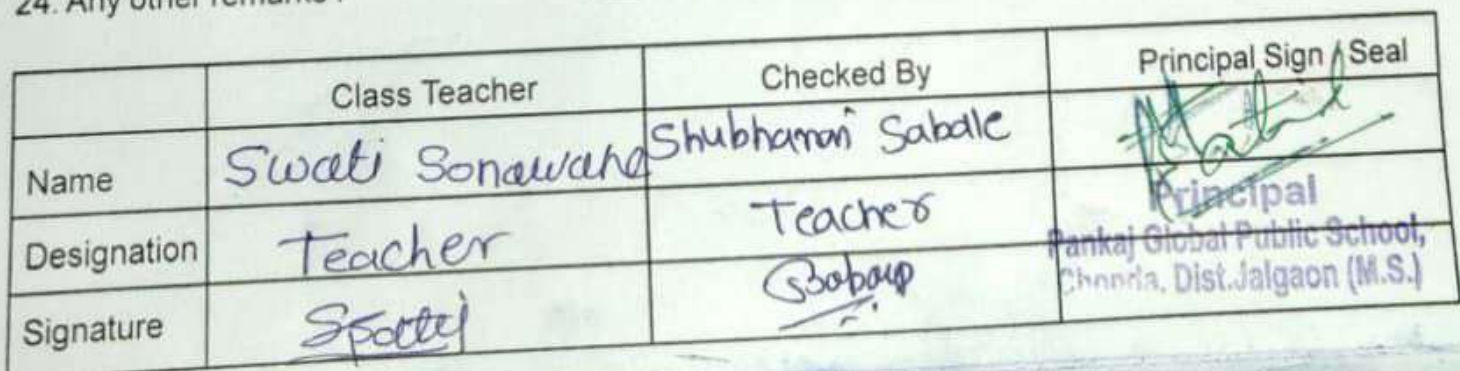 24. Any other remarks
Class Teacher Checked By Principal Sign / Seal
Name Swati Sonawane Shubhangi Sabale
Designation Teacher Teacher
Signature
Principal
Pankaj Global Public School,
Chopda, Dist.Jalgaon (M.S.)